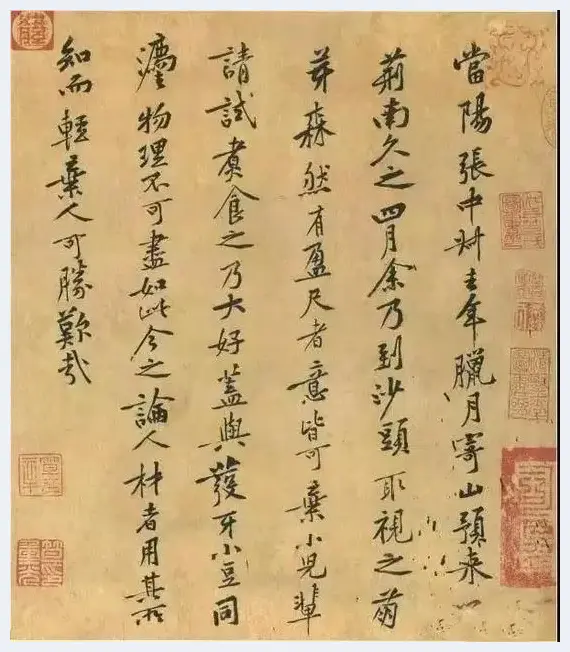 當陽張中叔去年臘月寄山預來
荊南久之四月余乃到沙頭取視之萌
芽森然有盈尺者意皆可棄小兒輩
請試煮食之乃大好蓋與發牙小豆同
灋物理不可盡如此今之論人材者用其所
知而輕棄人可勝歎哉